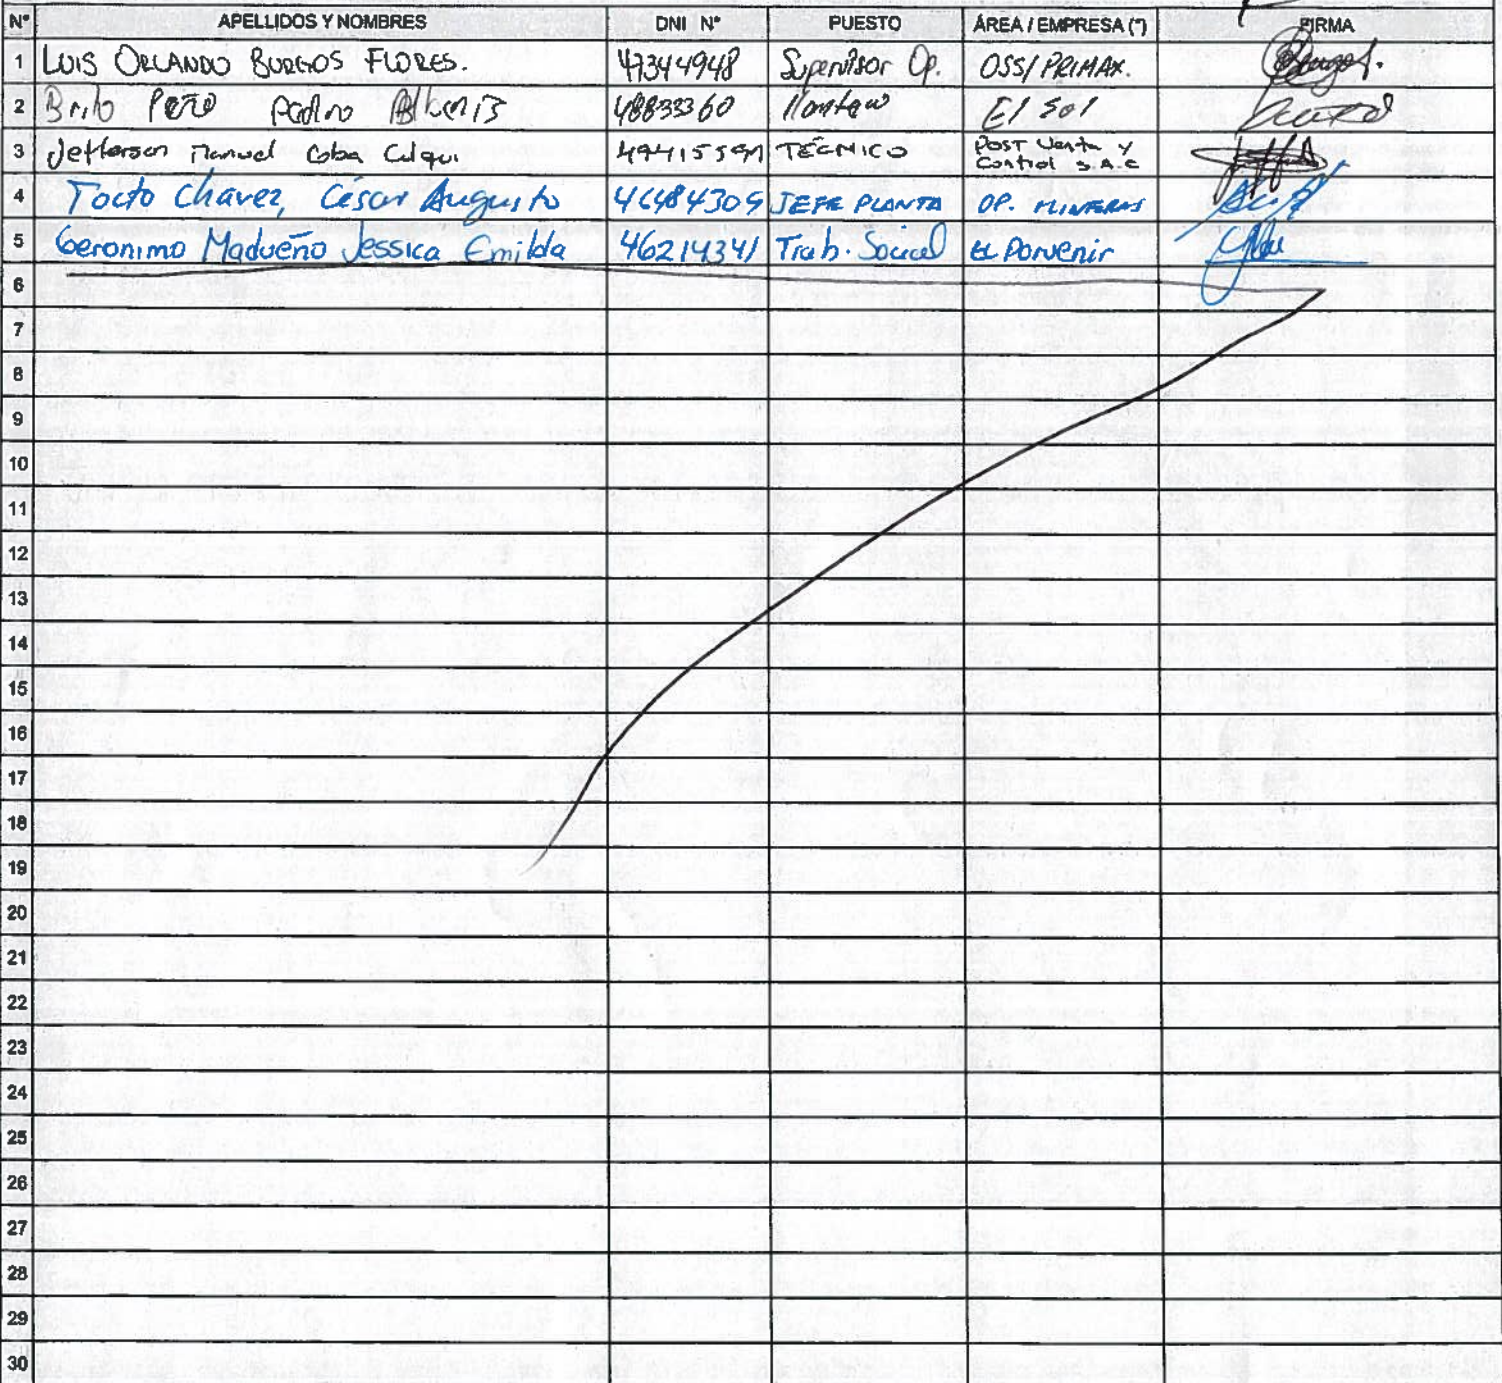 N° APELLIDOS Y NOMBRES DNI N° PUESTO ÁREA / EMPRESA (*) FIRMA
1 LUIS ORLANDO BURGOS FLORES. 47344948 Supervisor Op. OSS/PRIMAX.
2 Brito Pedro 48833360 El Sol
3 Jefferson Manuel Coba TÉCNICO Post Venta y
Control S.A.C
4 Tocto Chavez, César Augusto 46484309 JEFE PLANTA OP. MINERAS
5 Geronimo Madueño Jessica Emilda 46214341 Trab. Social EL Porvenir
6
7
8
9
10
11
12
13
14
15
16
17
18
19
20
21
22
23
24
25
26
27
28
29
30